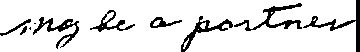 may be a partner